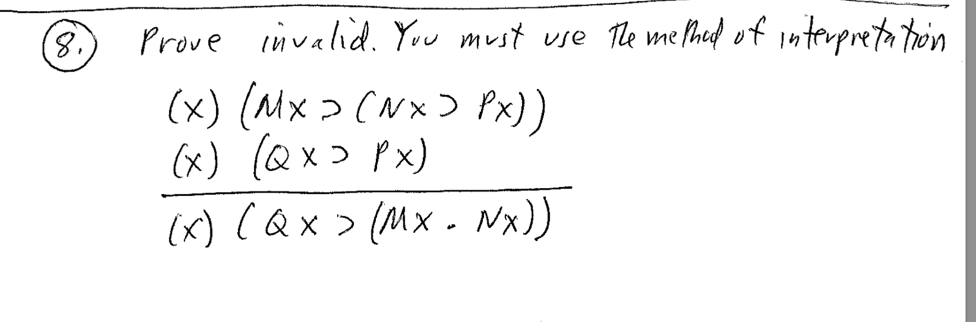 8. Prove invalid. You must use The method of interpretation
(x) (Mx ⊃ (Nx ⊃ Px))
(x) (Qx ⊃ Px)
(x) (Qx ⊃ (Mx . Nx))